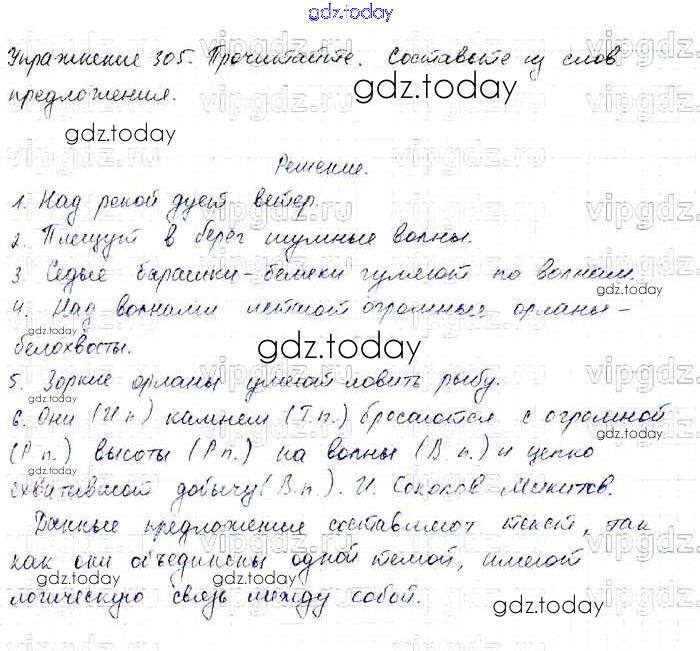 gdz.today
Упражнение 305. Прочитайте. Составьте из слов
предложения.
gdz.today
gdz.today
Решение.
1. Над рекой дует ветер.
2. Плещут в берег шумные волны.
3. Седые барашки-беляки гуляют по волнам.
gdz.today
4. Над волнами летают огромные орланы-
gdz.today
белохвосты.
gdz.today
5. Зоркие орланы умеют ловить рыбу.
6. Они (И.п) камнем (Т.п.) бросаются с огромной
gdz.today
(Р.п.) высоты (Р.п.) на волны (В.п.) и цепко
gdz.today
схватывают добычу (В.п.). И. Соколов-Микитов.
Данные предложения составляют текст, так
как они объединены одной темой, имеют
gdz.today
логическую связь между собой.
gdz.today
vipgdz.ru